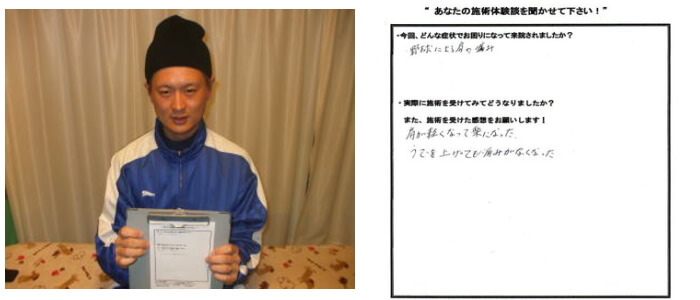 “ あなたの施術体験談を聞かせて下さい！”
・今回、どんな症状でお困りになって来院されましたか？
野球による肩の痛み
・実際に施術を受けてみてどうなりましたか？
また、施術を受けた感想をお願いします！
肩が軽くなって楽になった
うでを上げても痛みがなくなった